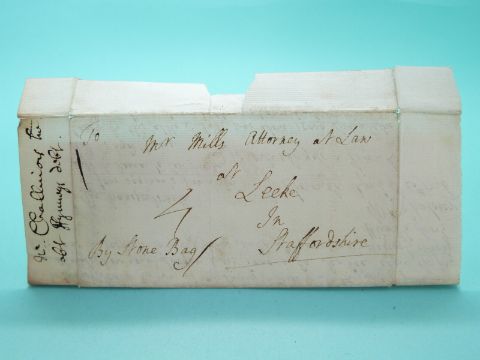 To
Mr Mills Attorney at Law
At
Leeke
In
Staffordshire
By Stone Bag
4
Challinor
abt debt.